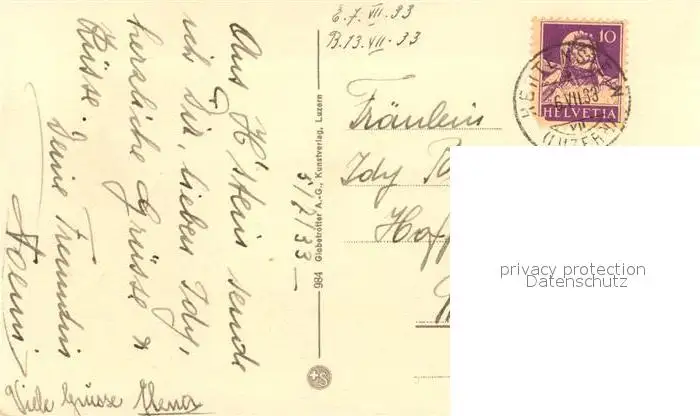 E. 7. VII. 33
B. 13. VII. 33
10
HELVETIA
6.VII.33
(LUZERN)
Fräulein
Idy
Hoff
Aus H'stein sende
ich Dir, liebes Idy,
herzliche Grüsse &
Küsse.
Deine Freundin
Noemi
Viele Grüsse
5/7/33
984 Globetrotter A.-G., Kunstverlag, Luzern
privacy protection
Datenschutz